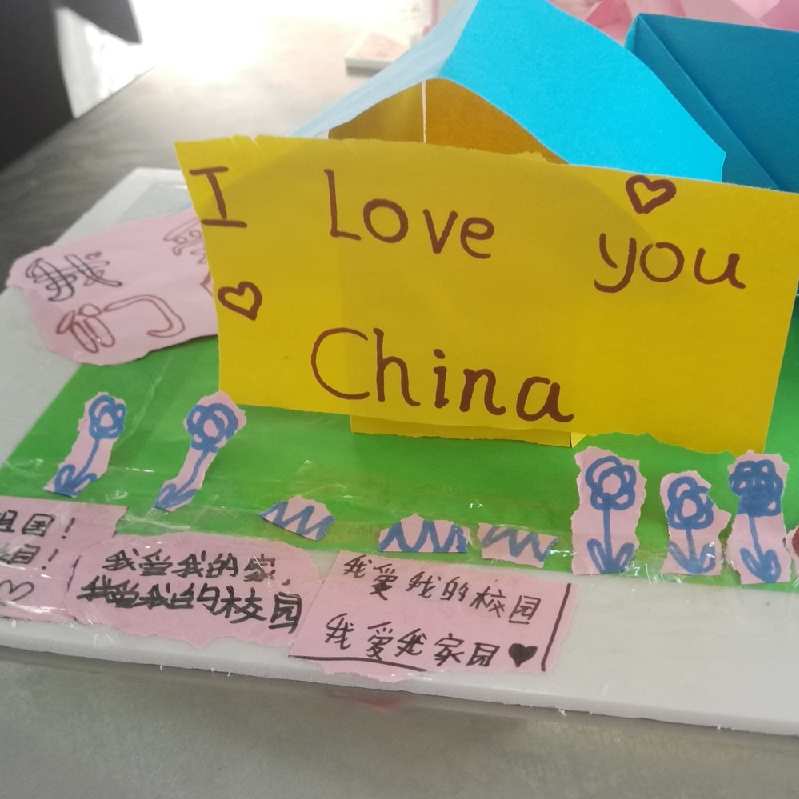 I Love you
China
我
们
祖国！
我爱我的家，
我爱我的校园
我爱我的校园
我爱我家园